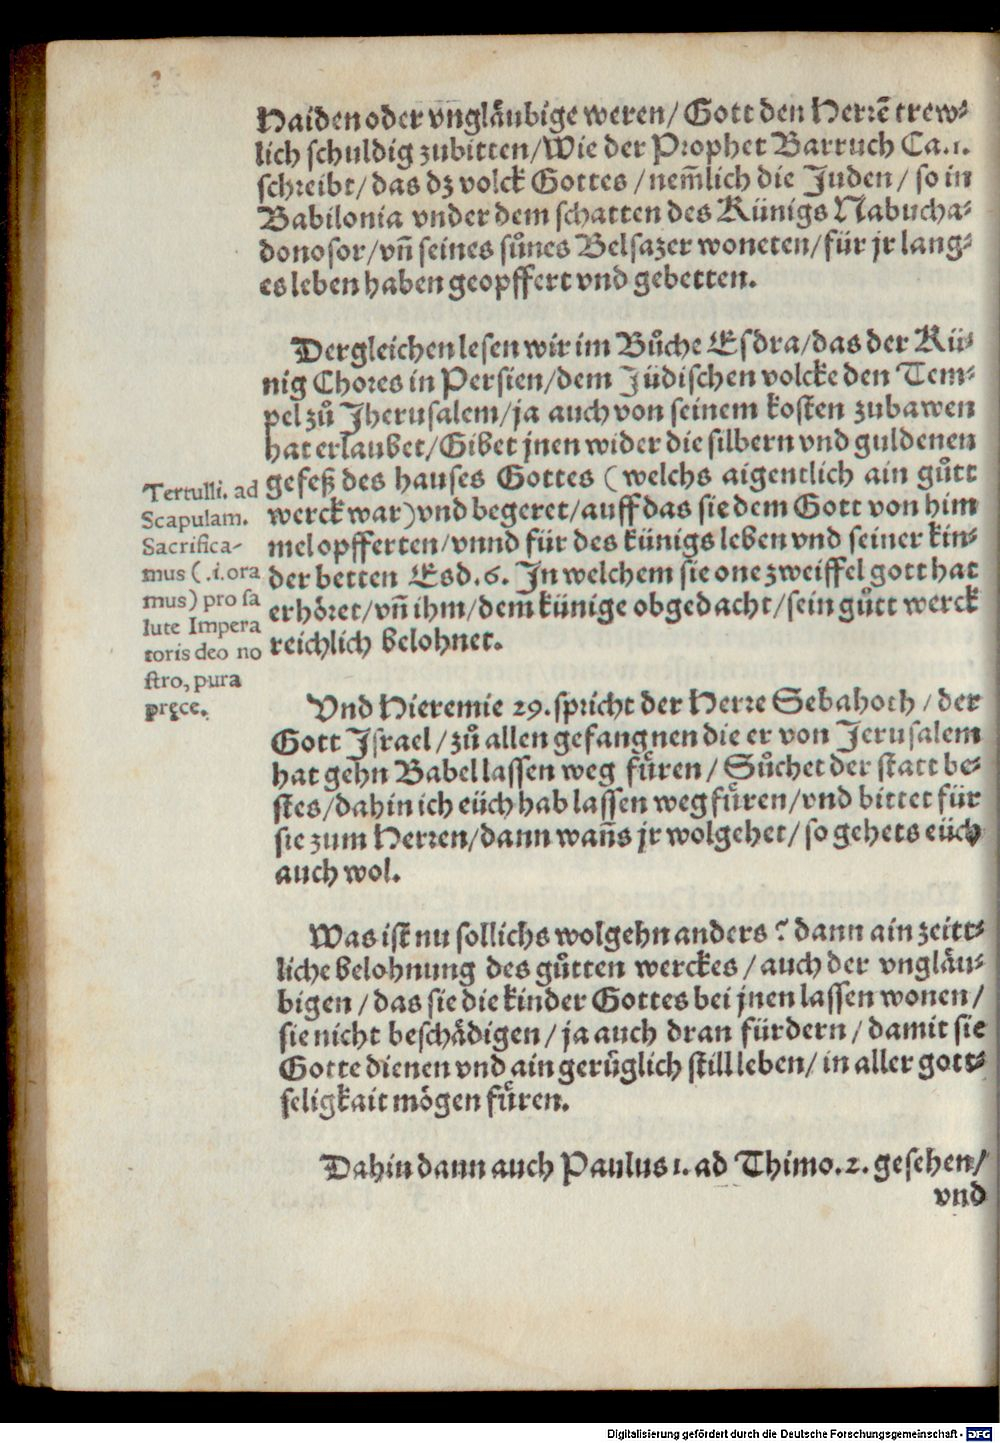 Haiden oder vngläubige weren/ Gott den Herrē trew⸗
lich schuldig zubitten/Wie der Prophet Barruch Ca.1.
schreibt/das dz volck Gottes/nem̄lich die Juden/ so in
Babilonia vnder dem schatten des Künigs Nabucha⸗
donosor/vn̄ seines sůnes Belsazer woneten/für jr lang⸗
es leben haben geopffert vnd gebetten.
Dergleichen lesen wir im Bůche Esdra/das der Kü⸗
nig Chores in Persien/dem Jüdischen volcke den Tem⸗
pel zů Jherusalem/ja auch von seinem kosten zubawen
hat erlaubet/Gibet jnen wider die silbern vnd guldenen
gefeß des hauses Gottes (welchs aigentlich ain gůtt
werck war) vnd begeret/auff das sie dem Gott von him
mel opfferten/vnnd für des künigs leben vnd seiner kin⸗
der betten Esd.6. In welchem sie one zweiffel gott hat
erhöret/vn̄ ihm/dem künige obgedacht/sein gůtt werck
reichlich belohnet.
Tertulli. ad
Scapulam.
Sacrifica-
mus (.i.ora
mus) pro sa
lute Impera
toris deo no
stro, pura
pręce.
Vnd Hieremie 29. spricht der Herre Sebahoth/der
Gott Israel/zů allen gefangnen die er von Jerusalem
hat gehn Babel lassen weg fůren/ Sůchet der statt be⸗
stes/dahin ich eüch hab lassen weg fůren/vnd bittet für
sie zum Herren/dann wan̄s jr wolgehet/so gehets eüch
auch wol.
Was ist nu sollichs wolgehn anders? dann ain zeitt⸗
liche belohnung des gůtten werckes/auch der vngläu⸗
bigen/das sie die kinder Gottes bei jnen lassen wonen/
sie nicht beschädigen/ja auch dran fürdern/damit sie
Gotte dienen vnd ain gerůglich still leben/in aller gott⸗
seligkait mögen fůren.
Dahin dann auch Paulus 1. ad Thimo.2. gesehen/
vnd
Digitalisierung gefördert durch die Deutsche Forschungsgemeinschaft - DFG